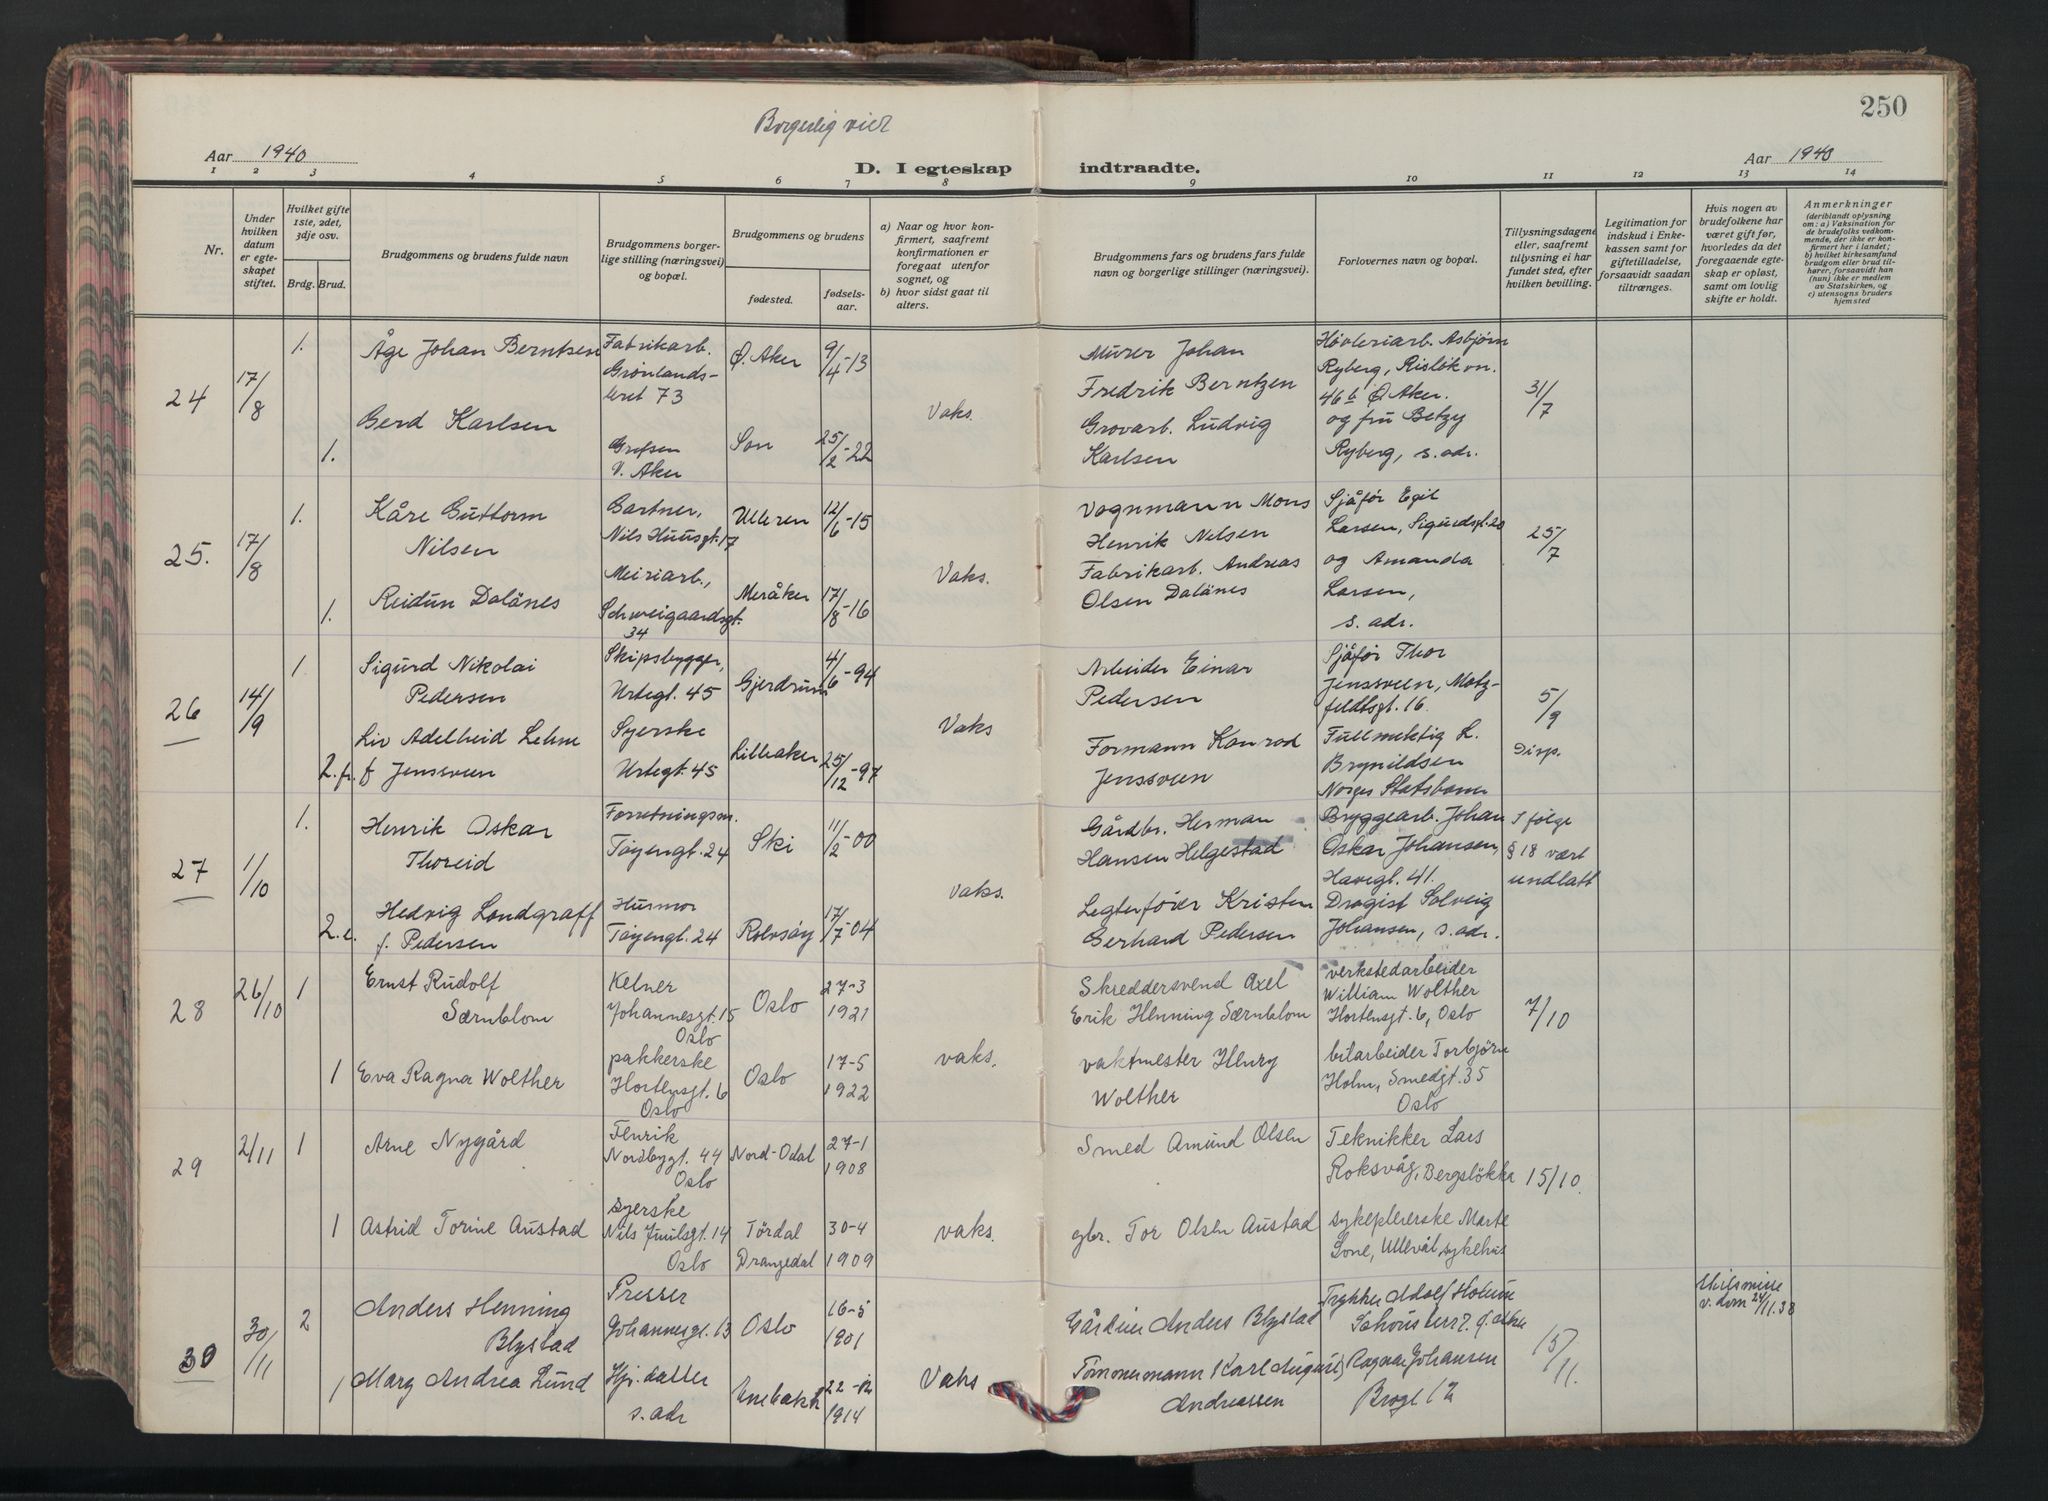 250
Borgerlig vier
Aar 1940
D. I egteskap indtraadte.
Aar 1940
1 2 3 4 5 6 7 8 9 10 11 12 13 14
Nr.
Under hvilken datum er egteskapet stiftet.
Hvilket gifte 1ste, 2det, 3dje osv.
Brdg. Brud.
Brudgommens og brudens fulde navn
Brudgommens borgerlige stilling (næringsvei) og bopæl.
Brudgommens og brudens
fødested.
fødselsaar.
a) Naar og hvor konfirmert, saafremt konfirmationen er foregaat utenfor sognet, og
b) hvor sidst gaat til alters.
Brudgommens fars og brudens fars fulde navn og borgerlige stillinger (næringsvei).
Forlovernes navn og bopæl.
Tillysningsdagene eller, saafremt tillysning ei har fundet sted, efter hvilken bevilling.
Legitimation for indskud i Enkekassen samt for giftetilladelse, forsaavidt saadan tiltrænges.
Hvis nogen av brudefolkene har været gift før, hvorledes da det foregaaende egteskap er opløst, samt om lovlig skifte er holdt.
Anmerkninger
(deriblandt oplysning om: a) Vaksination for de brudefolks vedkommende, der ikke er konfirmert her i landet;
b) hvilket kirkesamfund brudgom eller brud tilhører, forsaavidt han (hun) ikke er medlem av Statskirken, og
c) utensogns bruders hjemsted
24
17/8
1.
Åge Johan Berntsen
Fabrikarb.
Grønlands-
leret 73
Ø. Aker
9/4-13
Murer Johan
Fredrik Berntzen
Høvleriarb. Asbjørn
Ryberg, Risløkvn.
46 b Ø Aker.
31/7
1.
Gerd Karlsen
Grefsen
V. Aker
Son
25/2-22
Vaks.
Grovarb. Ludvig
Karlsen
og fru Betzy
Ryberg, s. adr.
25.
17/8
1.
Kåre Guttorm
Nilsen
Gartner,
Nils Huusgt. 17
Ulleren
12/6-15
Vognmann Mons
Henrik Nilsen
Sjåfør Egil
Larsen, Sigurdsgt. 20
25/7
1.
Reidun Dalånes
Meiriarb.,
Schweigaardsgt.
34
Meråker
17/8-16
Vaks.
Fabrikarb. Andreas
Olsen Dalånes
og Amanda
Larsen,
s. adr.
26
14/9
1
Sigurd Nikolai
Pedersen
Skipsbygger,
Urtegt. 45
Gjerdrum
4/6-94
Arbeider Einar
Pedersen
Sjåfør Thor
Jenssveen, Motz-
feldtsgt. 16.
5/9
Disp.
2. fr.
Liv Adelheid Lehne
f Jenssveen
Syerske
Urtegt. 45
Lilleaker
25/12-97
Vaks
Formann Konrad
Jenssveen
Fullmektig L.
Brynildsen
Norges Statsbaner
27
1/10
1.
Henrik Oskar
Thoreid
Forretningsm.
Tøyengt. 24
Ski
11/2-00
Gårdbr. Herman
Hansen Helgestad
Bryggearb. Johan
Oskar Johansen,
Havegt. 41.
I følge
§ 18 vært
undlatt
2. e.
Hedvig Londgraff
f. Pedersen
Husmor
Tøyengt. 24
Rolvsøy
17/7-04
Vaks.
Legterfører Kristen
Gerhard Pedersen
Drogist Solveig
Johansen, s. adr.
28
26/10
1
Ernst Rudolf
Særnblom
Kelner
Johannesgt. 15
Oslo
Oslo
27-3
1921
Skreddersvend Axel
Erik Henning Særnblom
verkstedarbeider
William Wolther
Hortensgt. 6, Oslo
7/10
1
Eva Ragna Wolther
pakkerske
Hortensgt. 6
Oslo
Oslo
17-5
1922
vaks.
vaktmester Henry
Wolther
bilarbeider Torbjørn
Holm, Smedgt. 35
Oslo
29
2/11
1
Arne Nygård
Nordbygt. 44
Oslo
Nord-Odal
27-1
1908
Smed Amund Olsen
Teknikker Lars
Roksvåg, Bergsløkka
15/10.
1
Astrid Torine Austad
syerske
Nils Juulsgt. 14
Oslo
Tørdal
Drangedal
30-4
1909
vaks.
gbr. Tor Olsen Austad
sykepleierske Marte
Lone, Ullevål sykehus
30
30/11
2
Anders Henning
Blystad
Presser
Johannesgt. 13
Oslo
16-5
1901
Gårdeier Anders Blystad
Trykker Adolf Holum
15/11.
Skilsmisse
v. dom 24/11.38
1
Marg Andrea Lund
Hj. datter
s. adr
Enebakk
22-12
1914
Vaks
Tømmermann Karl August
Andreassen
Ragna Johansen